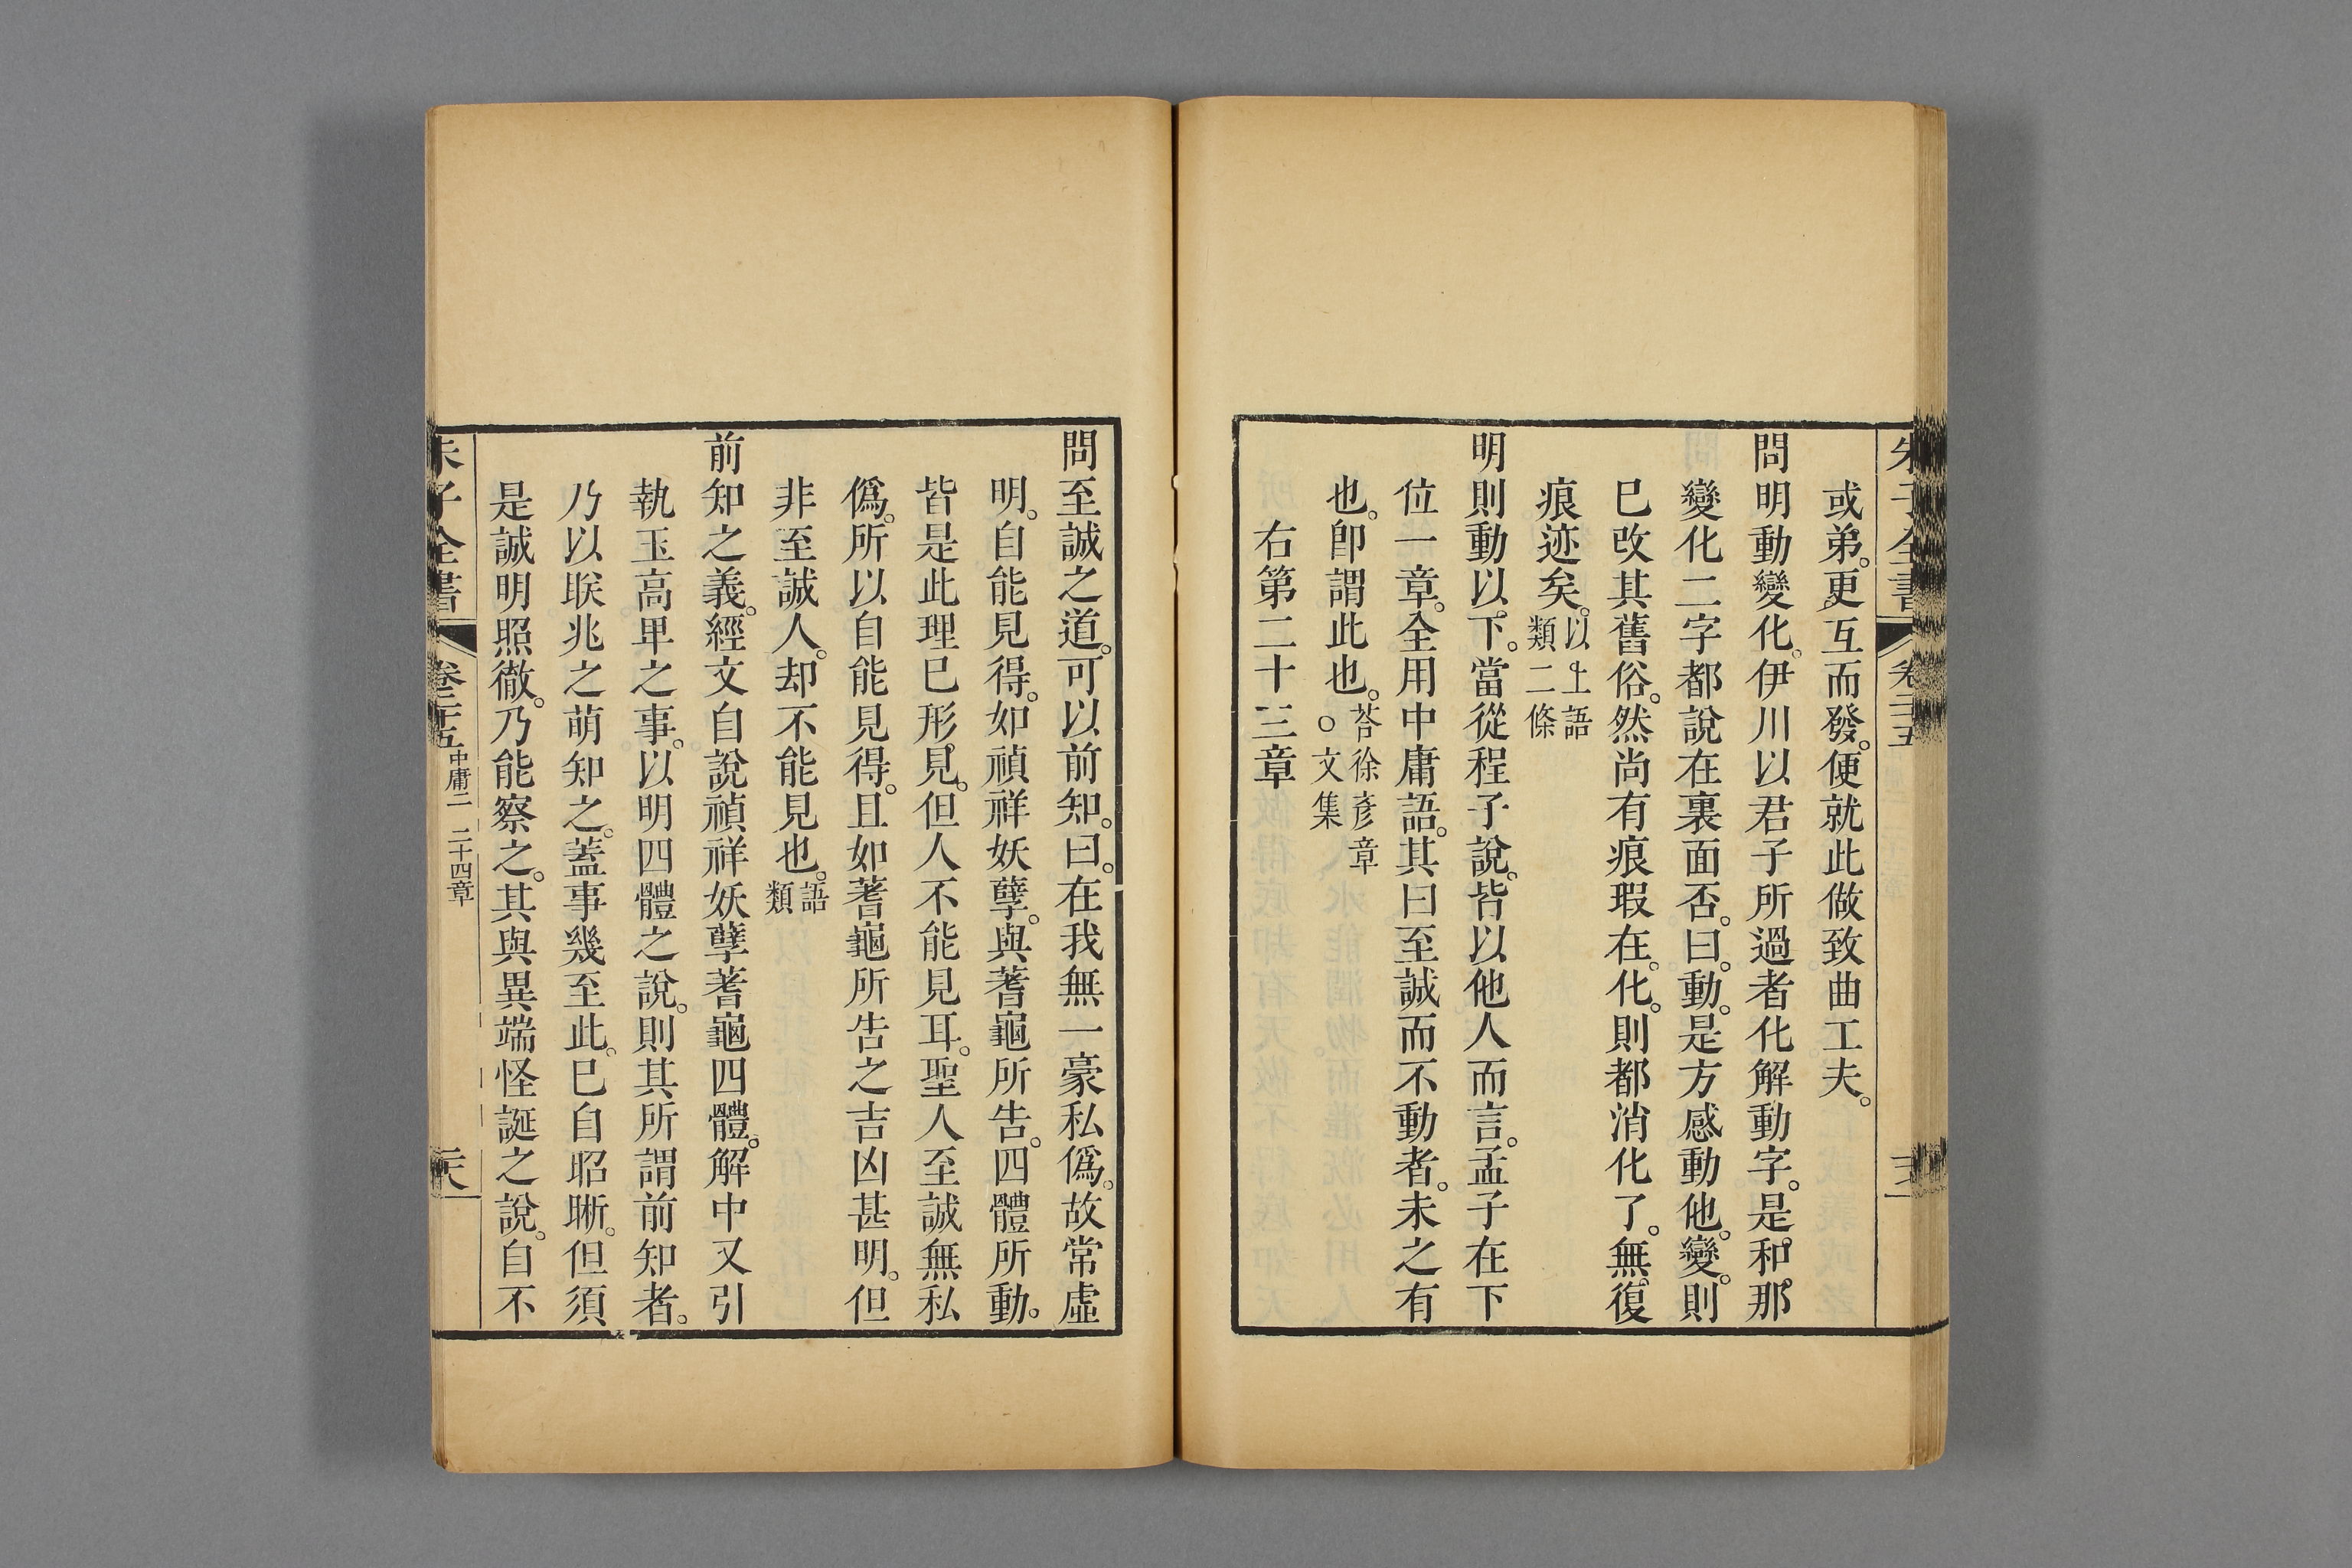 或弟。更互而發。便就此做致曲工夫。
問明動變化。伊川以君子所過者化解動字。是和那
變化二字都說在裏面否。曰。動。是方感動他。變。則
已改其舊俗。然尚有痕瑕在。化。則都消化了。無復
痕迹矣。以上語類二條
明則動以下。當從程子說。皆以他人而言。孟子在下
位一章。全用中庸語。其曰至誠而不動者。未之有
也。卽謂此也。荅徐彥章○文集
右第二十三章
問至誠之道。可以前知。曰。在我無一豪私僞。故常虛
明。自能見得。如禎祥妖孽。與蓍龜所告。四體所動。
皆是此理已形見。但人不能見耳。聖人至誠無私
僞。所以自能見得。且如蓍龜所告之吉凶甚明。但
非至誠人。却不能見也。語類
前知之義。經文自說禎祥妖孽蓍龜四體。解中又引
執玉高卑之事。以明四體之說。則其所謂前知者。
乃以眹兆之萌知之。蓋事幾至此。已自昭晰。但須
是誠明照徹。乃能察之。其與異端怪誕之說。自不
朱子全書 卷二十五 中庸二 二十四章